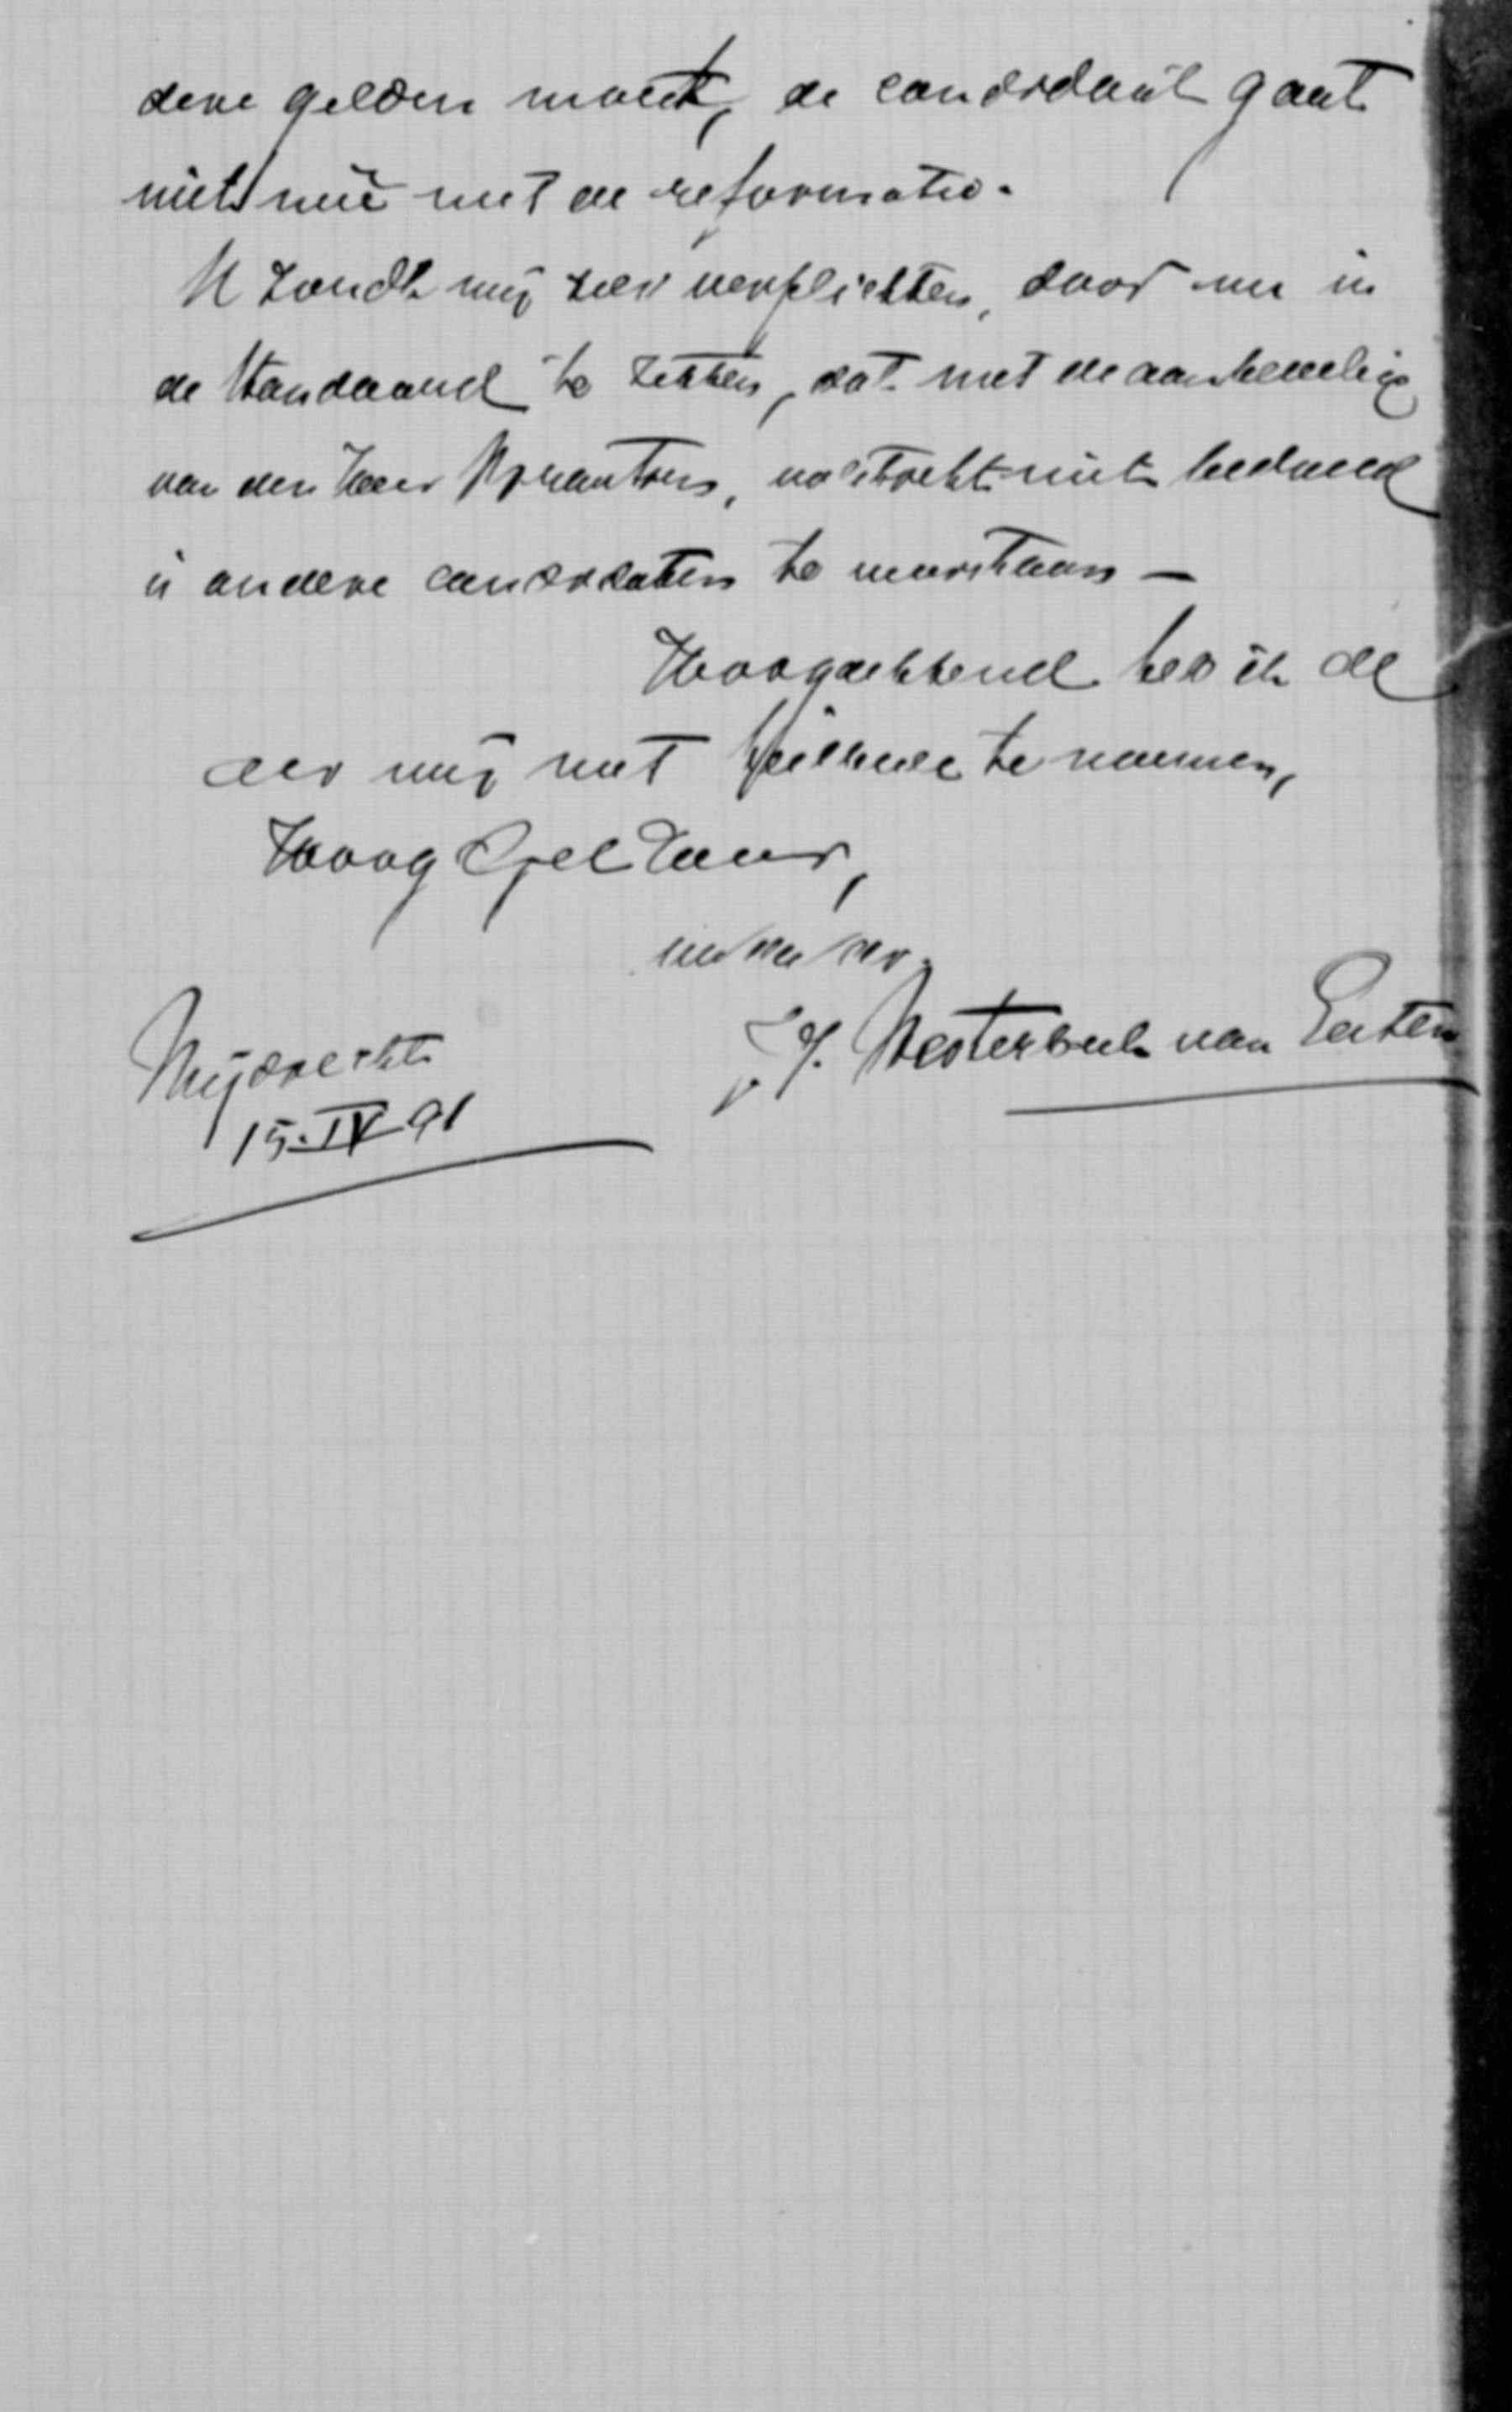 dere gelden moest, de candidaat gaat
niet meê met de reformatie.
U zoudt mij zeer verplichten, door nu in
de Standaard te zetten, dat met de aanbeveling
van den Heer volstrekt niet bedoeld
is andere candidaten te weerstaan —
Hoogachtend heb ik de
eer mij met te noemen,
HoogGel Heer,
uw dw dr.
J. Westerbeek van Eerten
Mijdrecht
15-IV-91